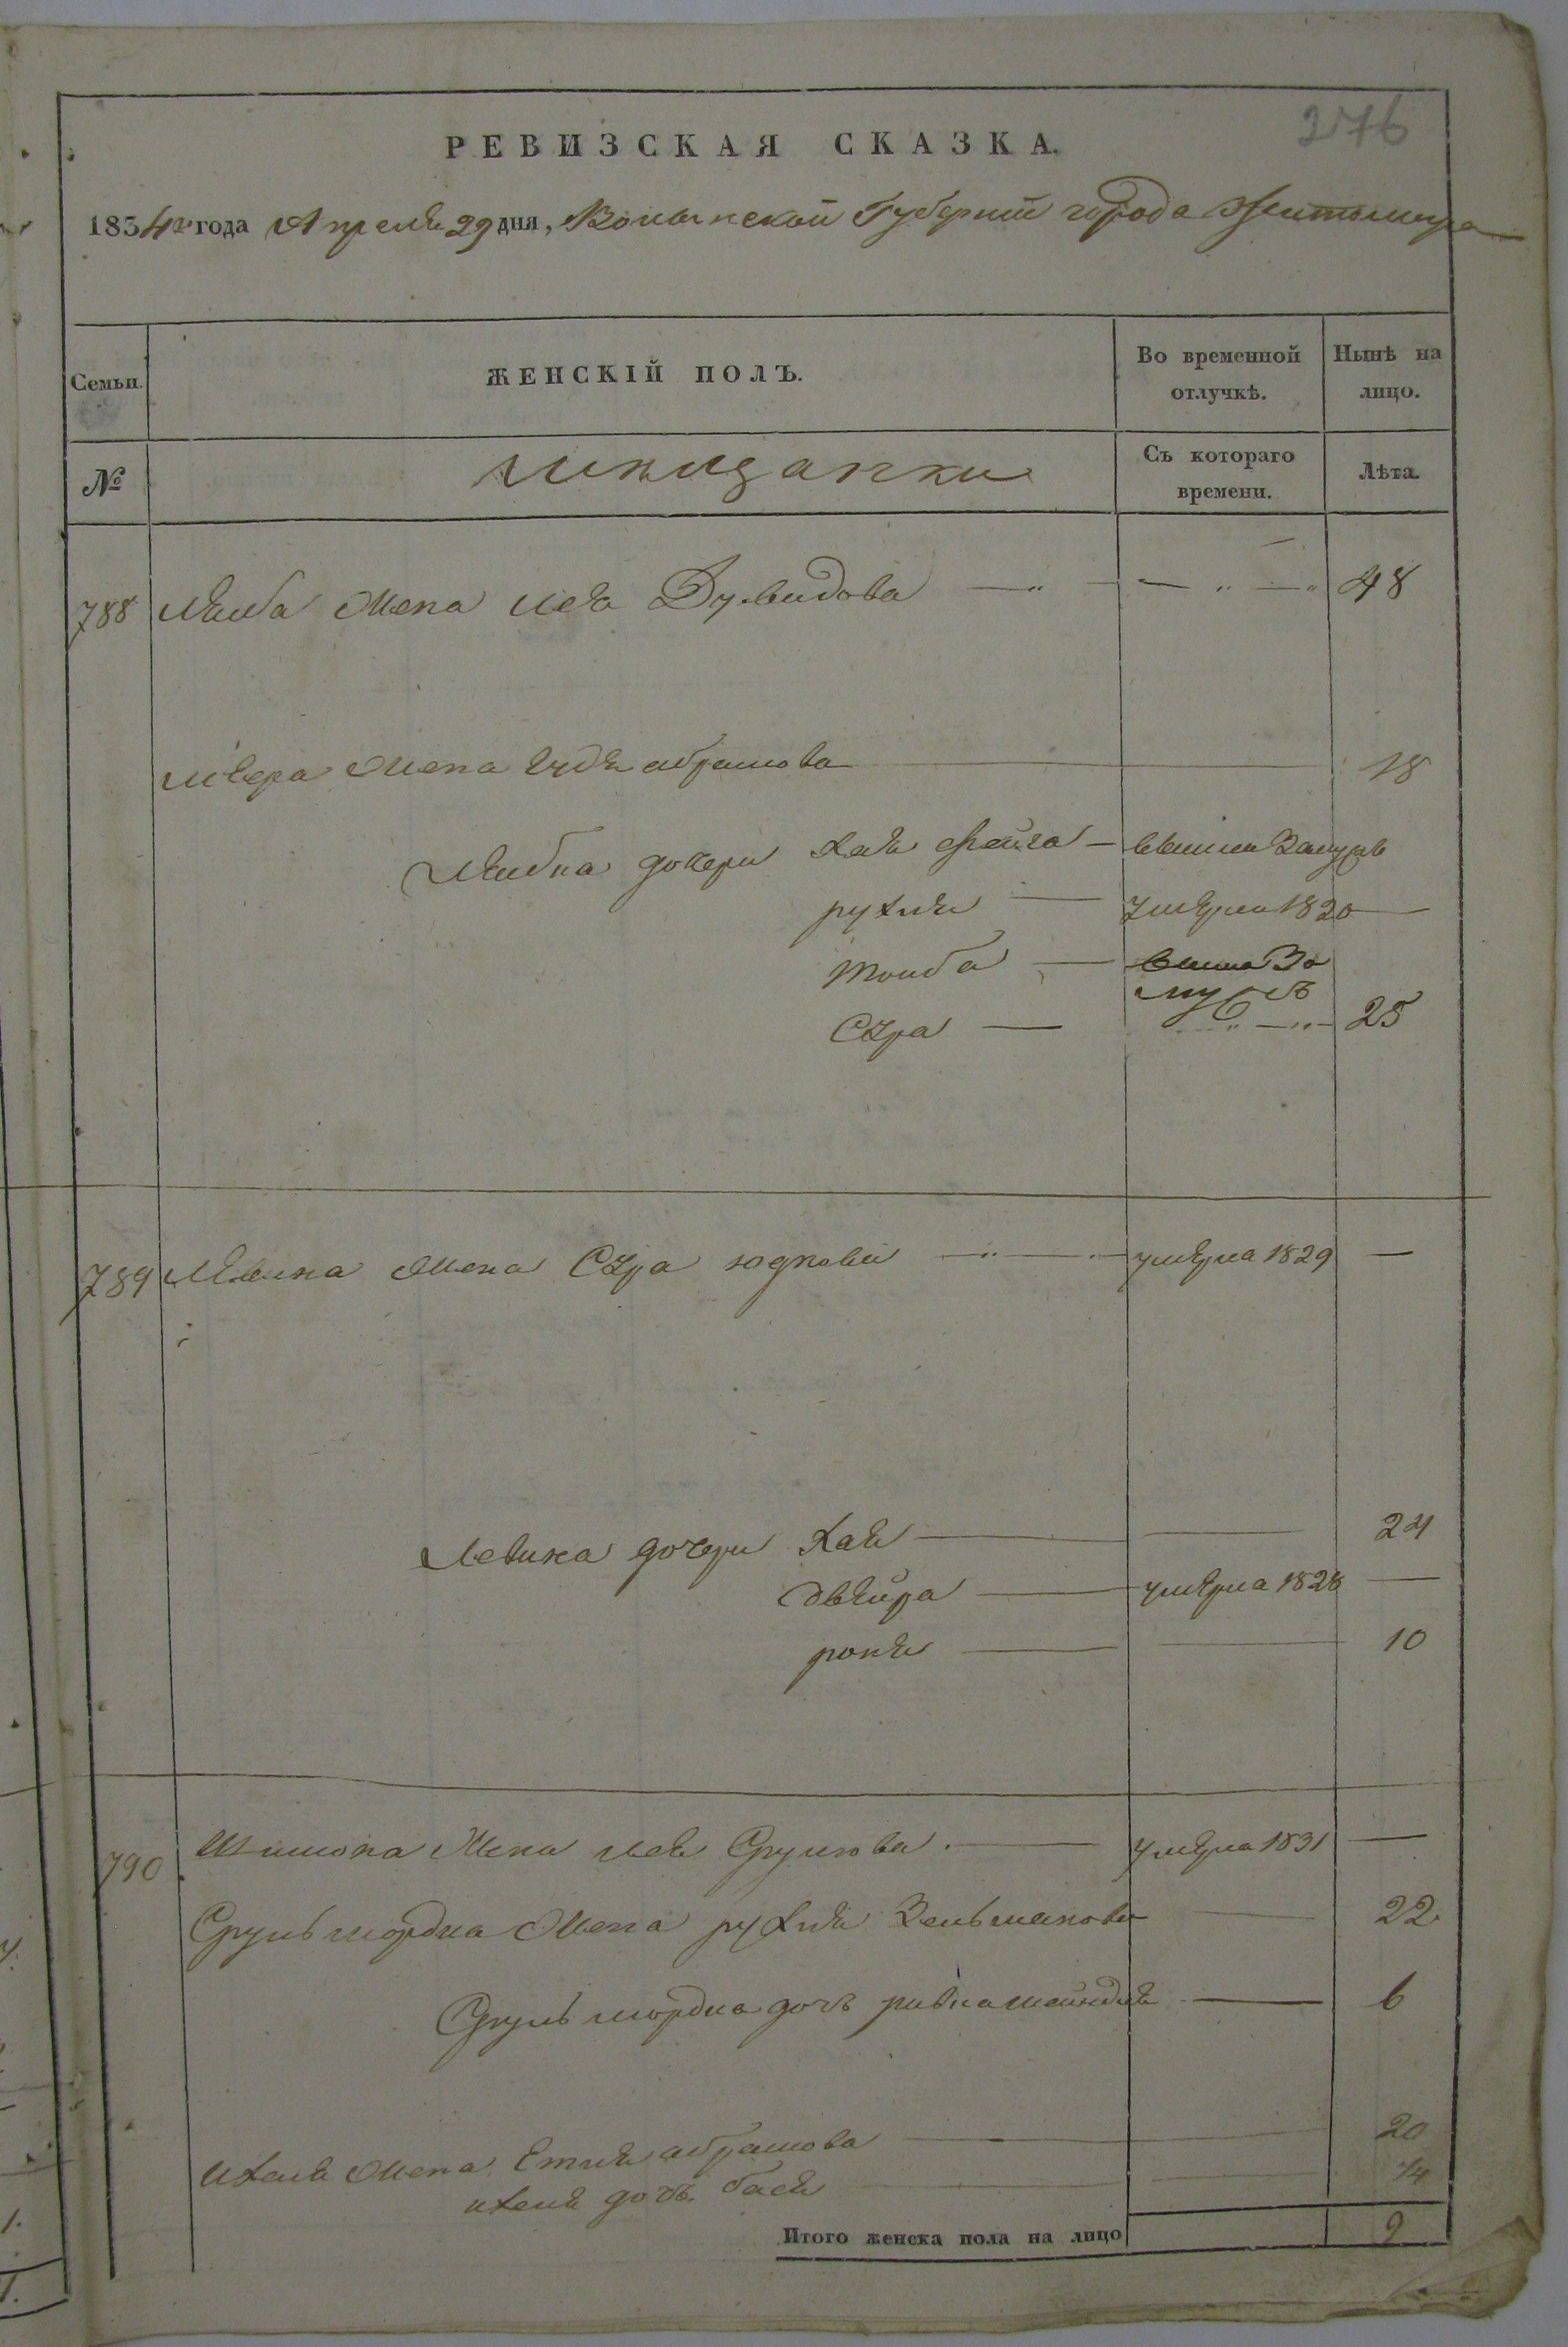 276
РЕВИЗСКАЯ СКАЗКА.
1834го года Апреля 29 дня, Волынской Губернии города Житомира
Семьи. ЖЕНСКІЙ ПОЛЪ. Во временной отлучкѣ. Нынѣ на лицо.
№ мещанки Съ котораго времени. Лѣта.
788 Лейба жена Лея Дувидова — " — — " — " 48
Мѣера жена абрамова 18
Лейбы дочери Хая Фейга — вышли Замужъ
рухля — умерла 1820 —
Тойба — вышла За
мужъ
Сура — " — " — 25
789 Левика жена Сура юдкова — " — умерла 1829 —
Левика дочери Хая — 24
двейра — умерла 1828 —
роня — 10
790 Шимона жена Лея Срулева. — умерла 1831 —
Сруль мордка жена рухля Зельманова — 22
Сруль мордка дочь ривка — 6
ихеля жена Етля абрамова — 20
ихеля дочь бася — 1/4
Итого женска пола на лицо 9